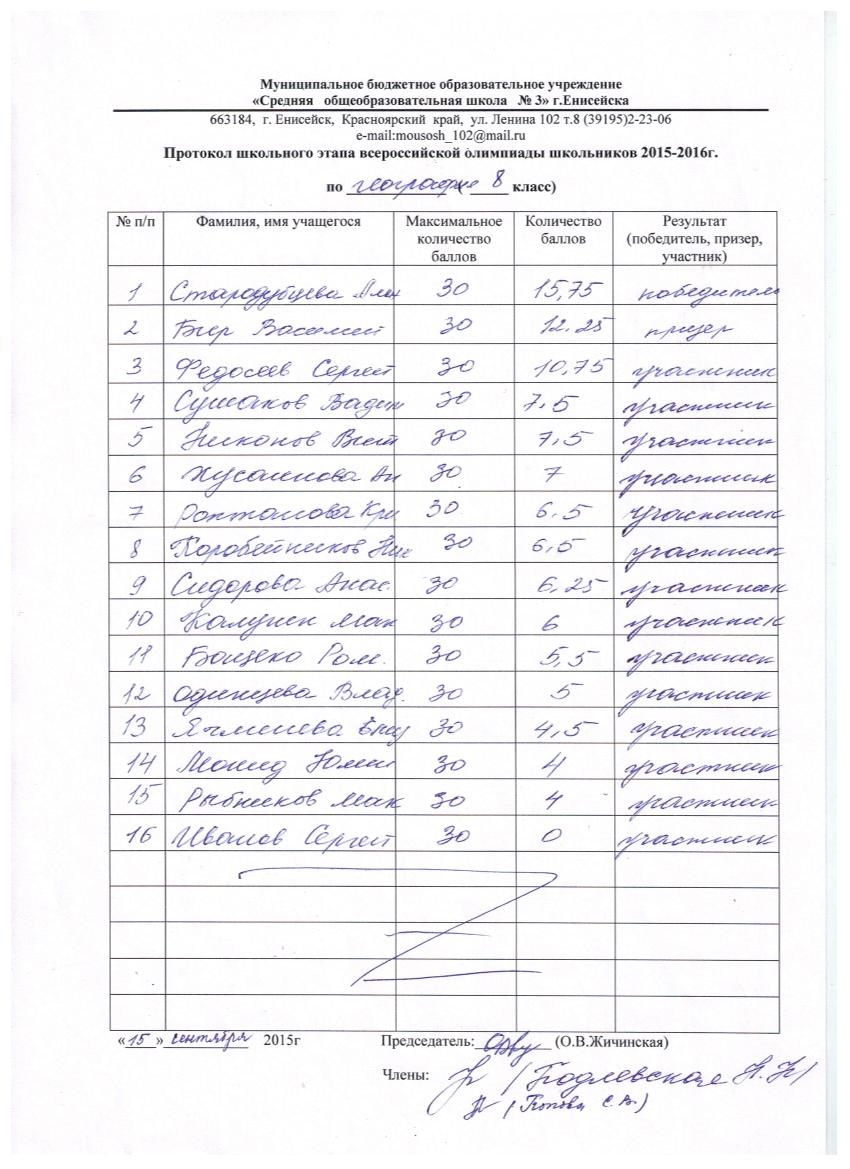 Муниципальное бюджетное образовательное учреждение
«Средняя общеобразовательная школа № 3» г.Енисейска
663184, г. Енисейск, Красноярский край, ул. Ленина 102 т.8 (39195)2-23-06
e-mail:mousosh_102@mail.ru
Протокол школьного этапа всероссийской олимпиады школьников 2015-2016г.
по географии ( 8 класс)
№ п/п Фамилия, имя учащегося Максимальное количество баллов Количество баллов Результат (победитель, призер, участник)
1 Стародубцева Ален 30 15,75 победитель
2 Бгер Василий 30 12.25 призер
3 Федосеев Сергей 30 10,75 участник
4 Сушаков Вадим 30 7,5 участник
5 Никонов Вит 30 7,5 участник
6 Хусаинова Ан 30 7 участник
7 Кри 30 6.5 участник
8 Коробейников Ник 30 6,5 участник
9 Сидорова Анас. 30 6,25 участник
10 Калугин Мак 30 6 участник
11 Бащеко Ром. 30 5,5 участник
12 Одинцева Влад. 30 5 участник
13 Ячменева 30 4,5 участник
14 30 4 участник
15 Рыбников Мак 30 4 участник
16 Иванов Сергей 30 0 участник
«15» сентября 2015г Председатель: (О.В.Жичинская)
Члены: / Подлевская Н.Н /
(Попова С.В.)